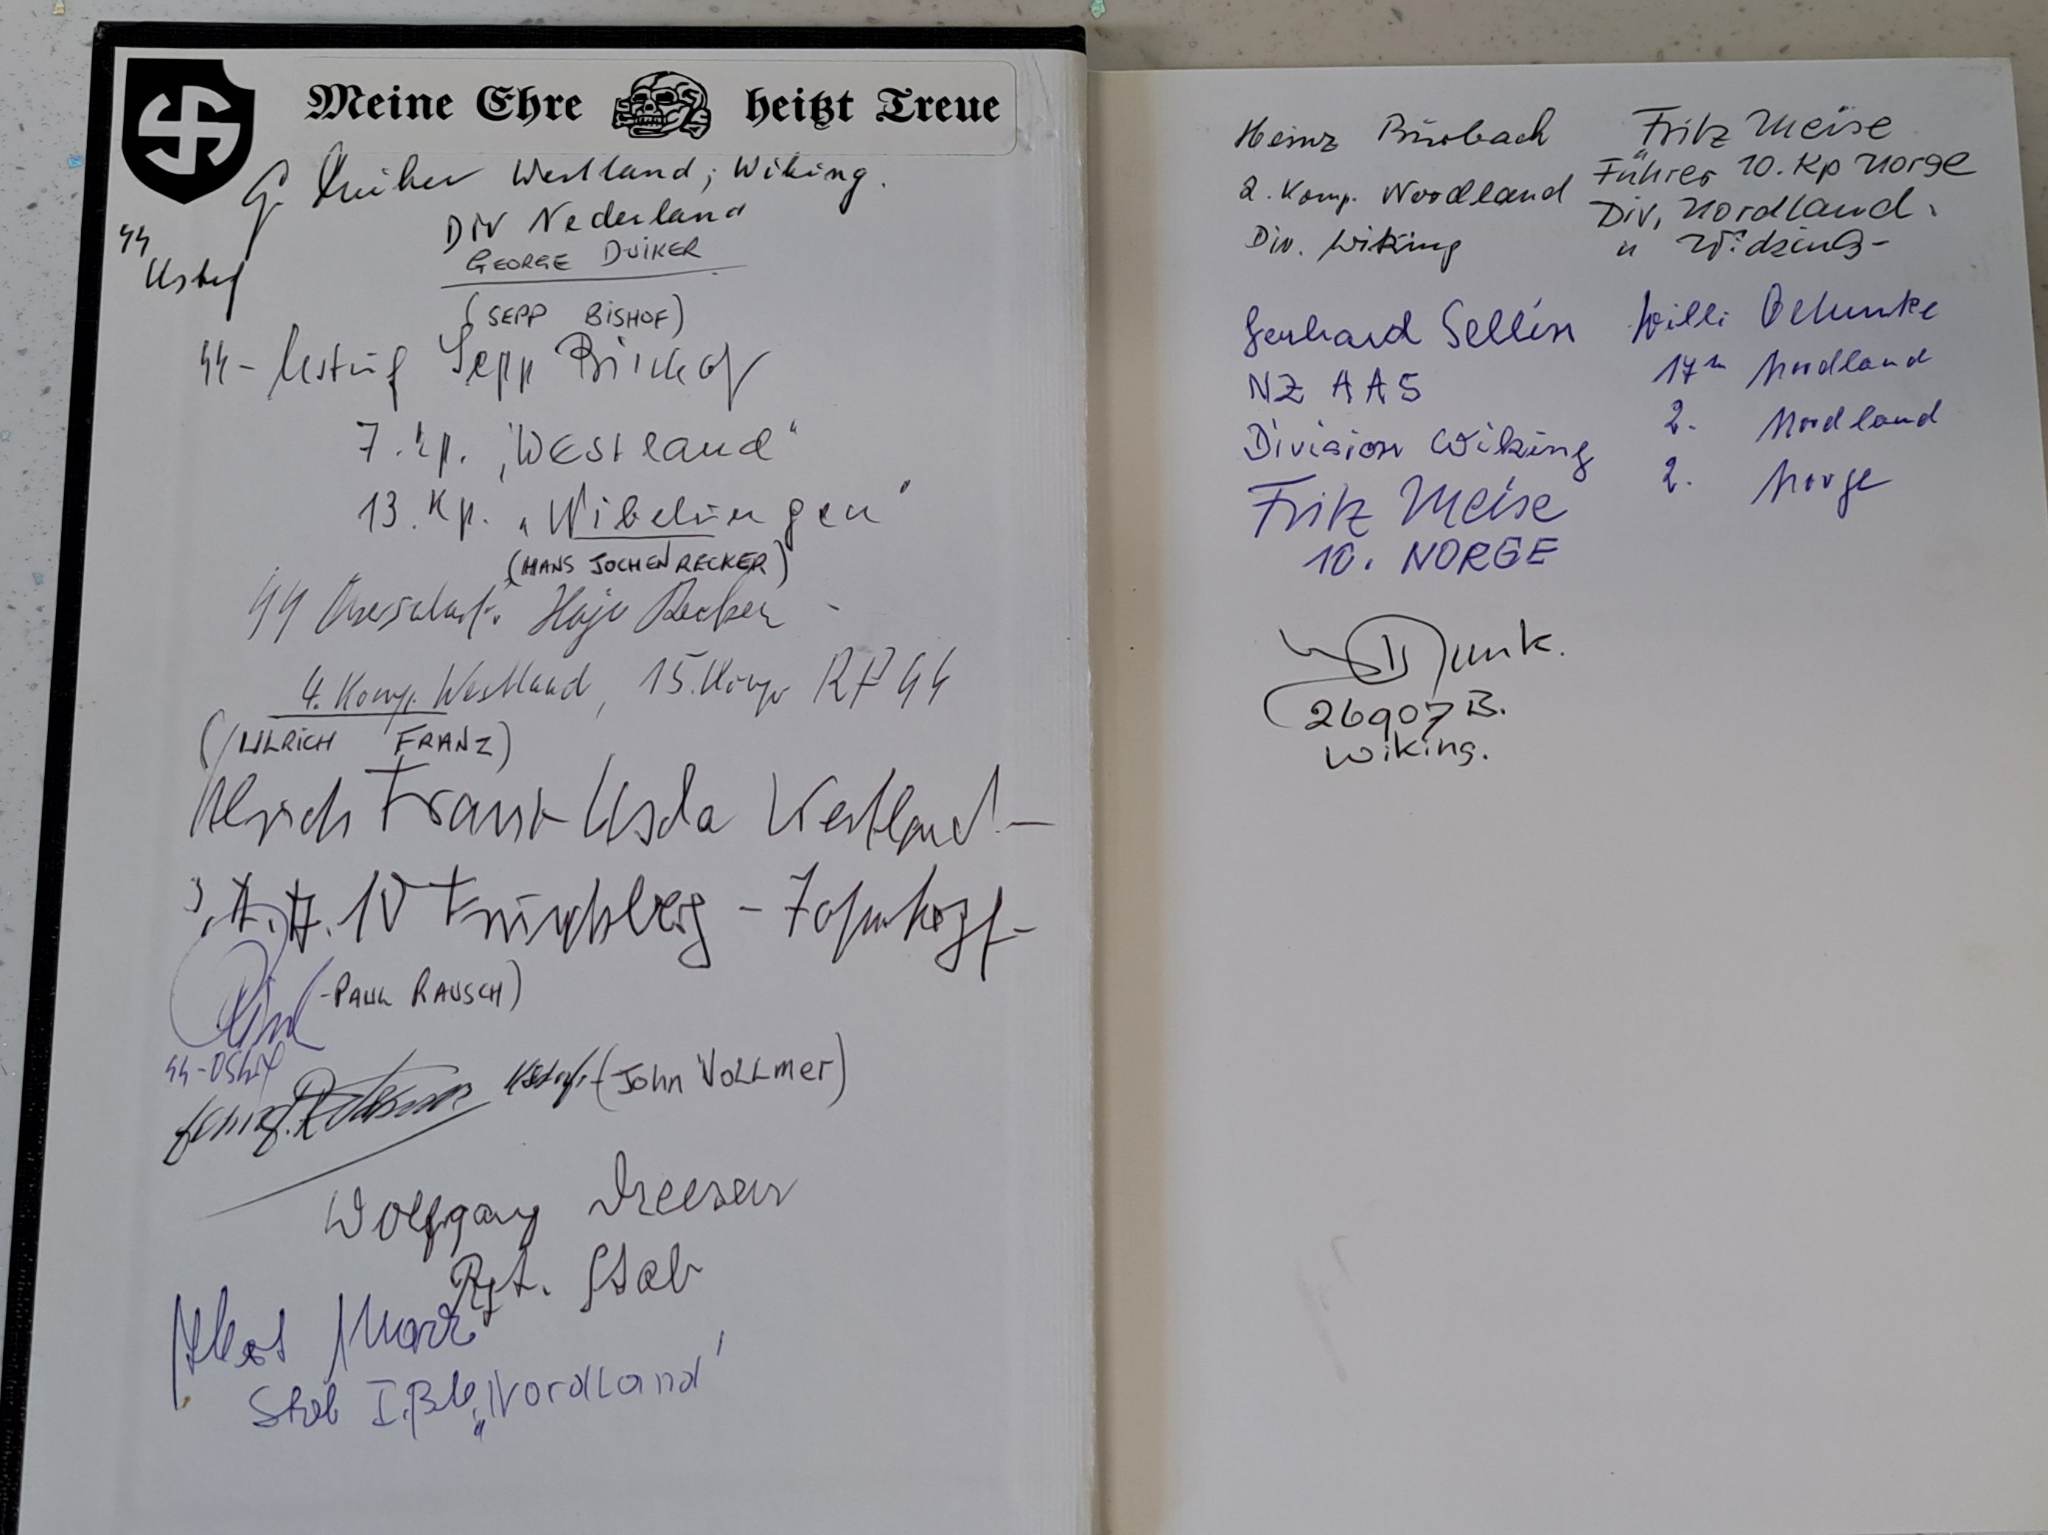 Meine Ehre heißt Treue
G. Duiker Westland, Wiking.
Div Nederland
GEORGE DUIKER
SS
Ustuf
(SEPP BISHOF)
SS - Ustuf Sepp Bischof
7. Kp. "Westland"
13. Kp. "Nibelungen"
(HANS JOCHEN RECKER)
SS Oberscharf. Hajo Recker
4. Komp. Westland, 15. Komp RF SS
(ULRICH FRANZ)
Ulrich Franz Uscha Westland -
10 Frundsberg -
(-PAUL RAUSCH)
SS-
(John Vollmer)
Wolfgang Dreesen
Rgt. Stab
Marr
Stab I. Btl. "Nordland"
Heinz Bürbach
2. Komp. Nordland
Div. Wiking
Fritz Meise
Führer 10. Kp Norge
Div. Nordland.
" Wiking-
Gerhard Sellin
NZ AA5
Division Wiking
Willi
17 Nordland
2. Nordland
2. Norge
Fritz Meise
10. NORGE
26907 B.
Wiking.